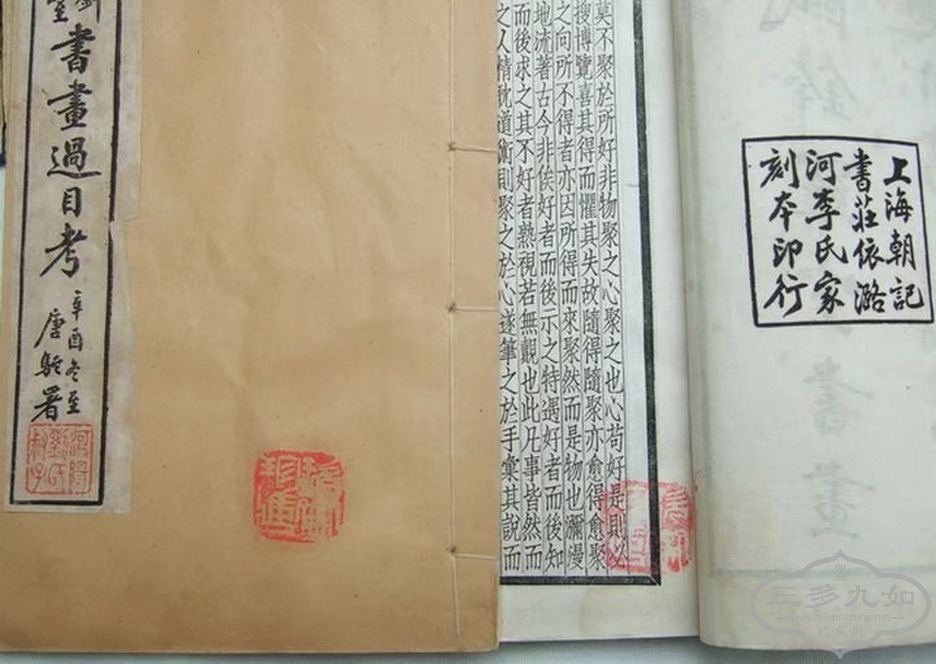 書畫過目考
辛酉冬至
唐駝署
莫不聚於所好非物聚之心聚之也心苟好是則必
搜博覽喜其得而懼其失故隨得隨聚亦愈得愈聚
之向所不得者亦因所得而來聚然而是物也瀰漫
地流著古今非俟好者而後示之特遇好者而後知
而後求之其不好者熟視若無覩也此凡事皆然而
之人精耽道術則聚之於心遂筆之於手彙其說而
上海朝記
書莊依潞
河李氏家
刻本印行
三多九如
www.silver-china.net